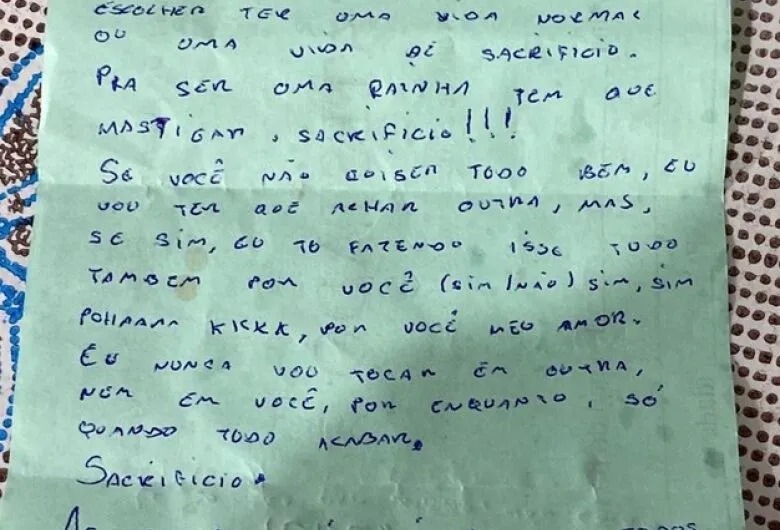 ESCOLHER TER UMA VIDA NORMAL
OU UMA VIDA DE SACRIFICIO.
PRA SER UMA RAINHA TEM QUE
MASTIGAR, SACRIFICIO!!!
SE VOCÊ NÃO QUISER TODO BEM, EU
VOU TER QUE ACHAR OUTRA, MAS,
SE SIM, EU TO FAZENDO ISSE TUDO
TAMBEM POR VOCÊ (SIM/NÃO) SIM, SIM
POHAAAA KKKK, POR VOCÊ MEU AMOR.
EU NUNCA VOU TOCAR EM OUTRA,
NEM EM VOCÊ, POR ENQUANTO, SÓ
QUANDO TODO ACABAR.
SACRIFICIO.